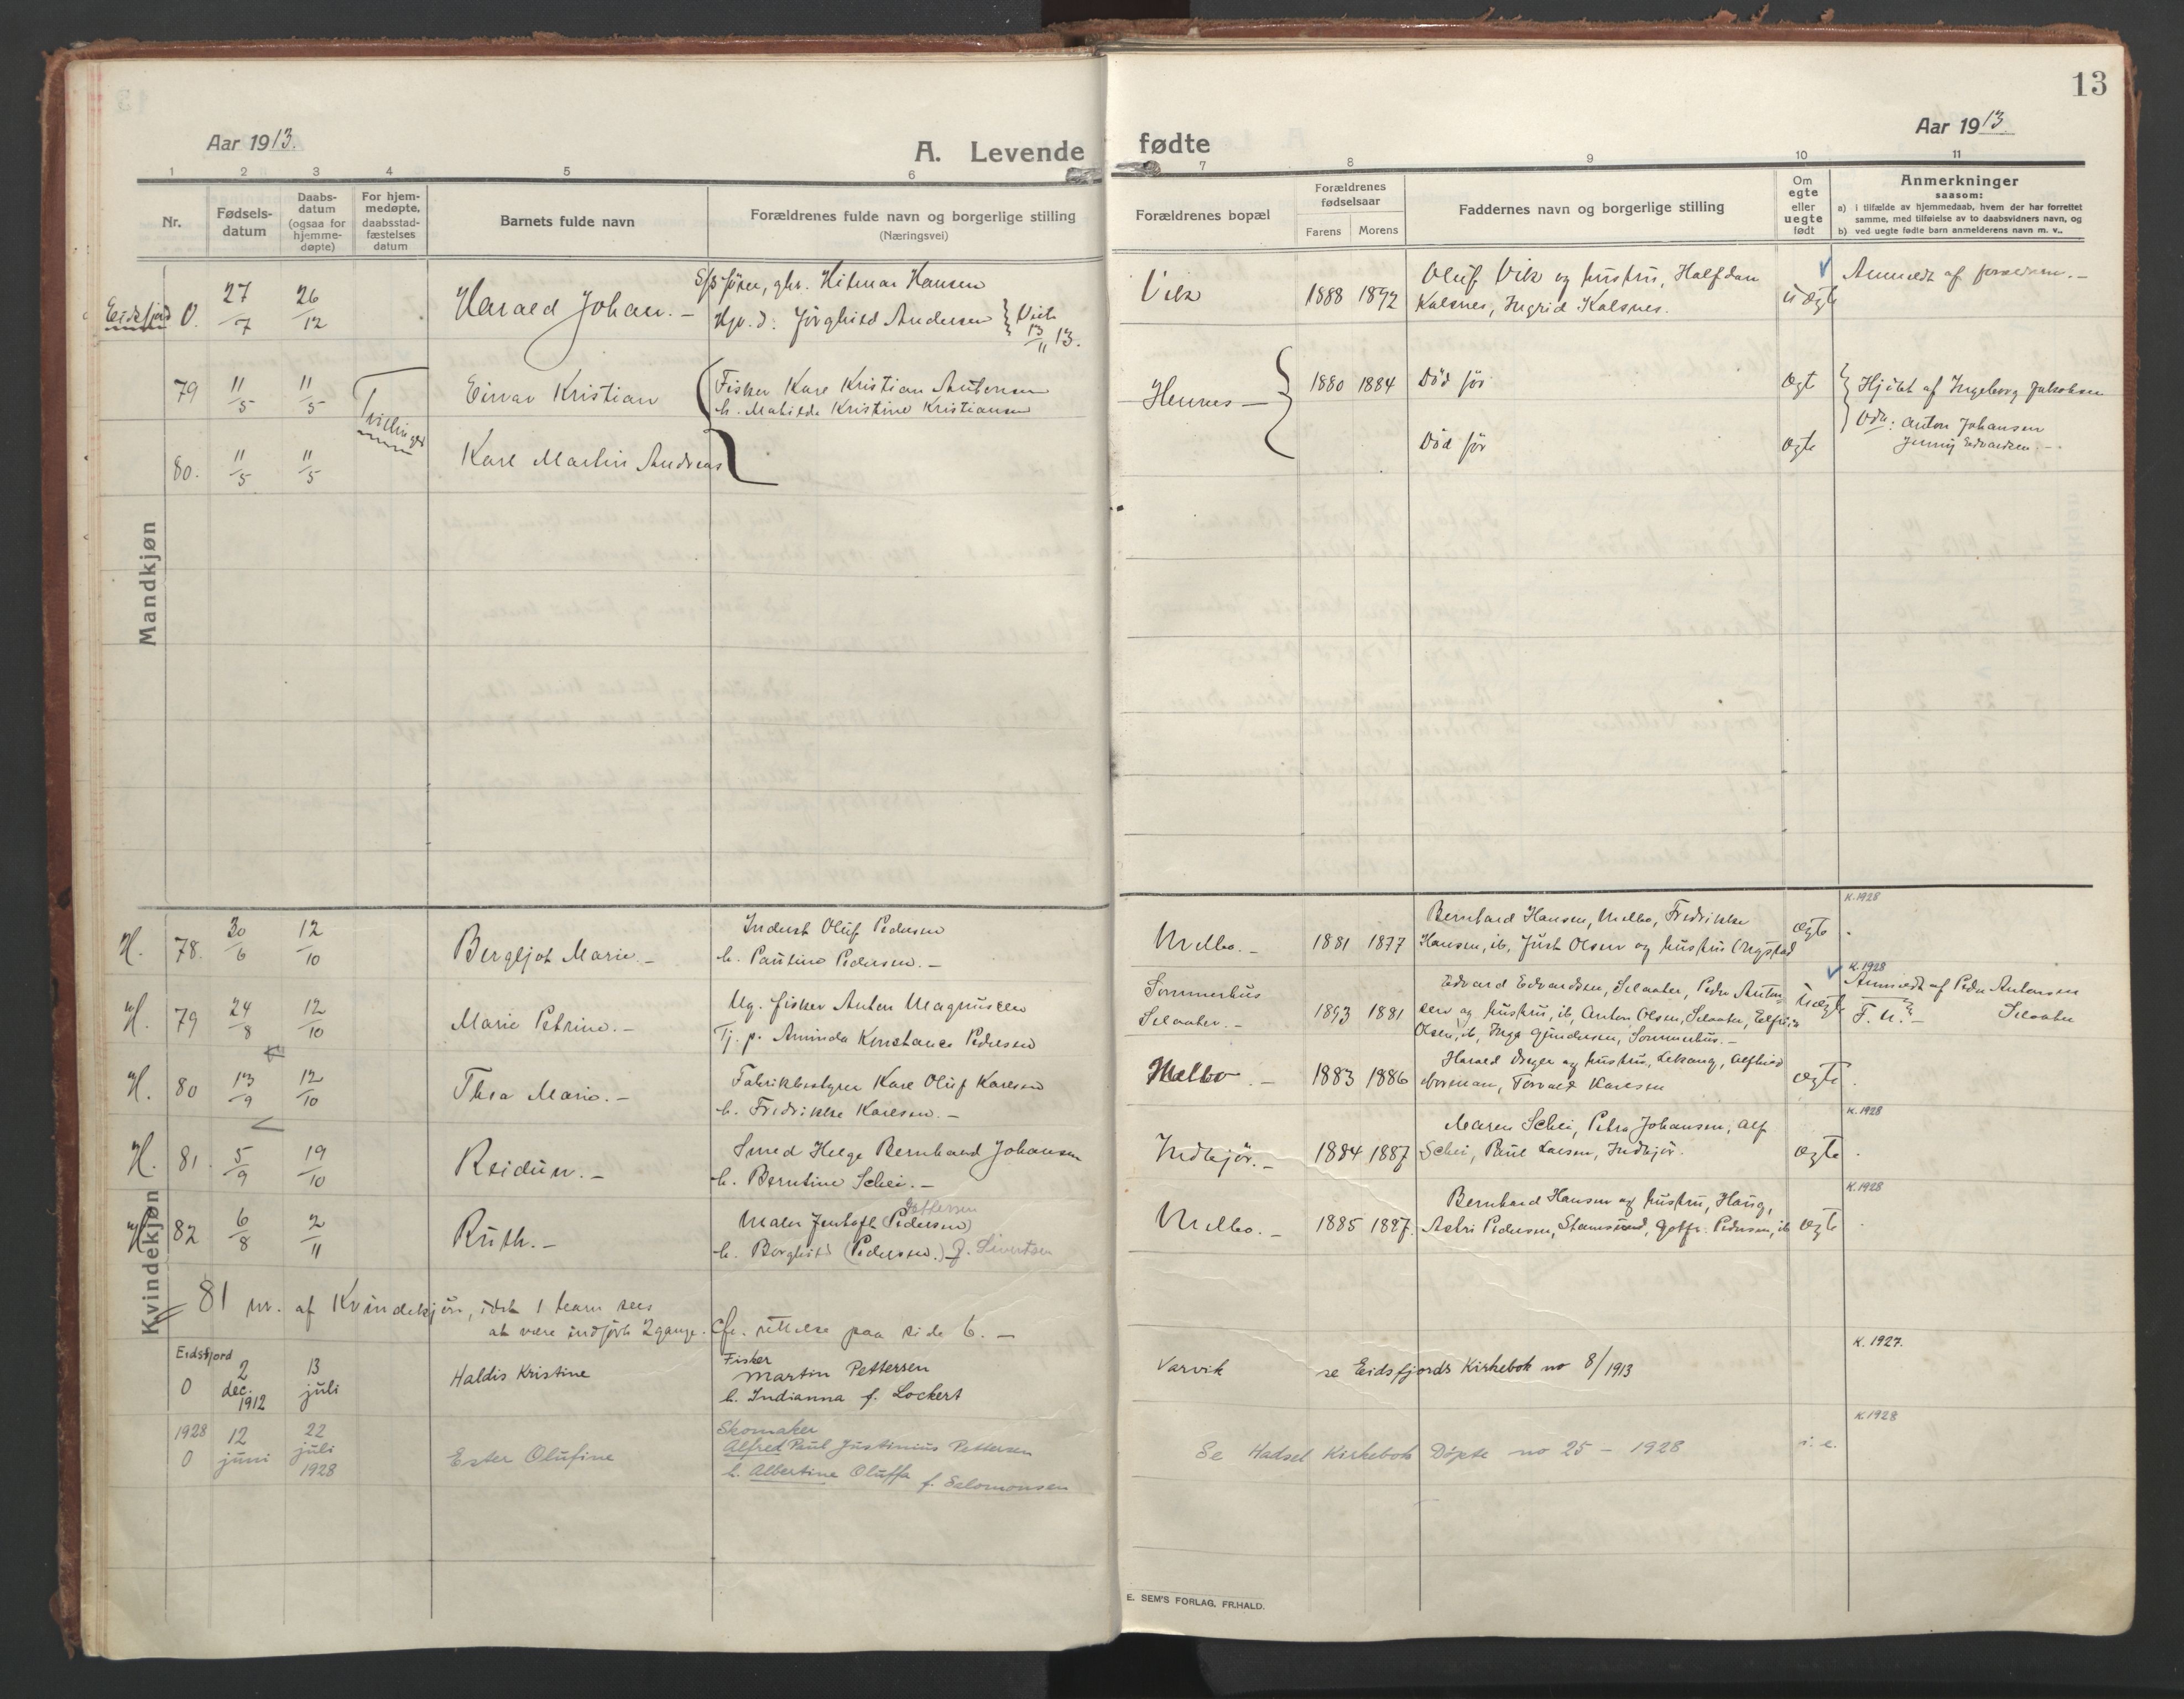 13
Aar 1913.
A. Levende fødte
Aar 1913
1 2 3 4 5 6 7 8 9 10 11
Nr.
Fødsels-
datum
Daabs-
datum
(ogsaa for
hjemme-
døpte)
For hjem-
medøpte,
daabsstad-
fæstelses
datum
Barnets fulde navn
Forældrenes fulde navn og borgerlige stilling
(Næringsvei)
Forældrenes bopæl
Forældrenes
fødselsaar
Farens Morens
Faddernes navn og borgerlige stilling
Om
egte
eller
uegte
født
Anmerkninger
saasom:
a) i tilfælde av hjemmedaab, hvem der har forrettet
samme, med tilføielse av to daabsvidners navn, og
b) ved uegte fødte barn anmelderens navn m. v..
Mandkjøn
Eidsfjord 0. 27/7 26/12 Harald Johan. –
gbr. Hilmar Hansen
d. Jørghild Andersen } Viet 13/11 13.
Vik 1888 1892
Oluf Vik og hustru, Halfdan
Kalsnes, Ingrid Kalsnes.
uægte
Anmeldt af forældrene. –
79 11/5 11/5 Tvillinger Einar Kristian
Fisker Karl Kristian Antonsen
h. Matilde Kristine Kristiansen
Hennes – 1880 1884 Død før ægte
Hjdbt af Ingeborg Jakobsen
Vdn: Anton Johansen
Jenny Edvardsen. –
80. 11/5 11/5 Karl Martin Andreas
Død før ægte
Kvindekjøn
H. 78. 30/6 12/10 Bergljot Marie. –
Indust Oluf Pedersen
h. Pauline Pedersen. –
Melbo. – 1881 1877
Bernhard Hansen, Melbo, Fredrikke
Hansen, ib, Just Olsen og hustru Rygstad
ægte K.1928
H. 79 24/8 12/10 Marie Petrine. –
Ug. fisker Anton Magnussen
Tj. p. Aminda Konstance Pedersen
Sommerhus
Selaater. – 1893 1881
Edvard Edvardsen, Selaater, Peder Anton-
sen og hustru, ib, Anton Olsen, Selaater,
Olsen, ib, Inga Gundersen, Sommerhus. –
uægte K.1928
Anmeldt af Peder Antonsen
Selaater
H. 80 13/9 12/10 Thea Marie. –
Fabrikbestyrer Karl Oluf Karlsen
h. Fredrikke Karlsen. –
Melbo. – 1883 1886
Harald Dreyer og hustru, Lekang, Alfhild
Norman, Torvald Karlsen
ægte
H. 81. 5/9 19/10 Reidun. –
Smed Helge Bernhard Johansen
h. Berntine Schei. –
Indkjør. – 1884 1887
Maren Schei, Petra Johansen, Alf
Schei, Paul Larsen, Indkjør.
ægte K.1928
H. 82 6/8 2/11 Ruth. –
Maler Jentoft (Pedersen) Pettersen
h. Borghild (Pedersen.) f. Sivertsen
Melbo. – 1885 1887.
Bernhard Hansen og hustru, Haug,
Astri Pedersen, Stamsund, Gotfr. Pedersen, ib
ægte K.1928
= 81 nr. af Kvindekjøn, idet 1 barn sees
at være indført 2 gange. Cfr. rettelse paa side 6. –
Eidsfjord
0 2 dec. 1912 13 juli Haldis Kristine
Fisker
Martin Pettersen
h. Indianna f. Lockert
Varvik se Eidsfjords Kirkebok no 8/1913
K. 1927.
1928
0 12 juni 22 juli 1928 Ester Olufine
Skomaker
Alfred Paul Justinius Pettersen
h. Albertine Oluffa f. Salomonsen
Se Hadsel Kirkebok Døpte no 25 – 1928
K.1928
E. SEM'S FORLAG, FR.HALD.